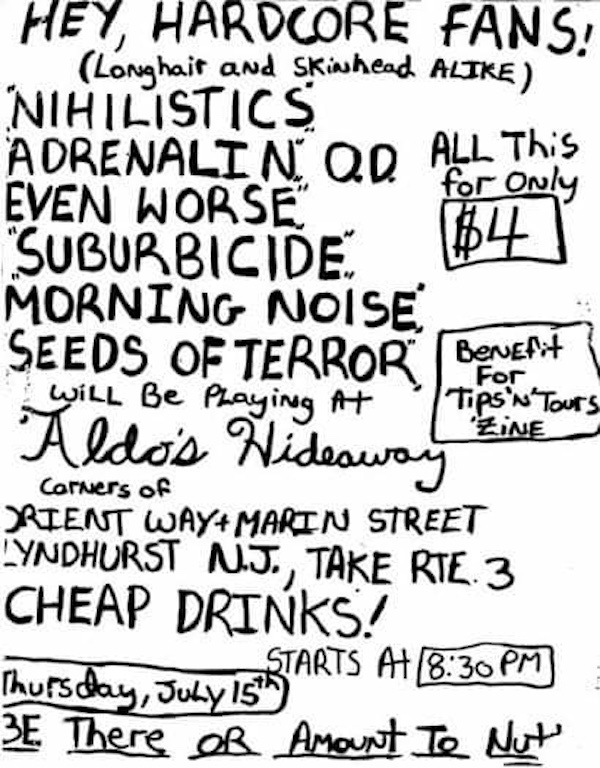 HEY, HARDCORE FANS!
(Longhair and Skinhead ALIKE)
"NIHILISTICS"
"ADRENALIN" O.D.
EVEN WORSE"
"SUBURBICIDE"
MORNING NOISE"
SEEDS OF TERROR"
ALL This
for Only
$4
Benefit
For
Tips 'N' Tours
'ZINE
WILL Be Playing At
"Aldo's Hideaway
Corners of
ORIENT WAY + MARIN STREET
LYNDHURST N.J., TAKE RTE. 3
CHEAP DRINKS!
STARTS At 8:30 PM
Thursday, July 15th
BE There OR Amount To Nut